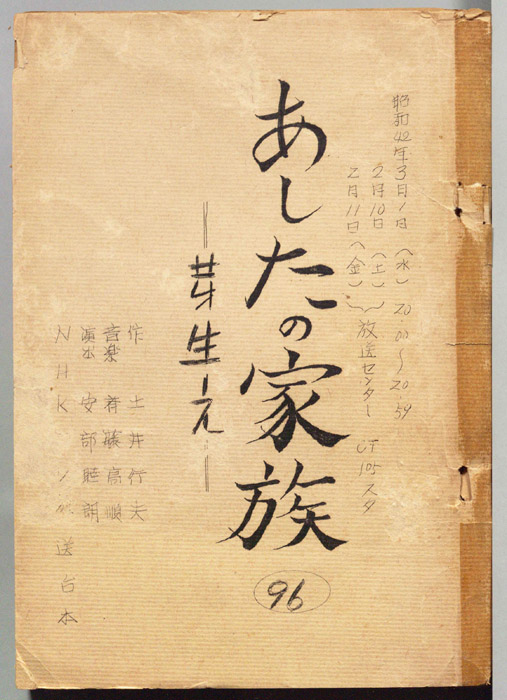 昭和42年3月1日（水）20:00〜20:59
2月10日（土）
2月11日（金）
放送センター CT105スタ
あしたの家族
―芽生え―
96
作 土井行夫
音楽 斉藤高順
演出 安部 朗
NHK 放送台本